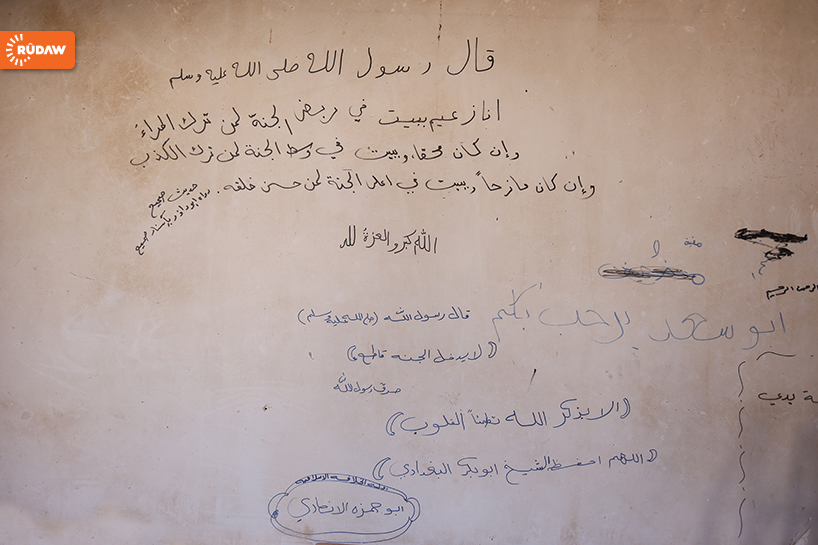 RÛDAW
قال رسول الله صلى الله عليه وسلم
انا زعيم ببيت في ربض الجنة لمن ترك المراء
وإن كان محقا، وببيت في وسط الجنة لمن ترك الكذب
وإن كان مازحاً، وببيت في اعلى الجنة لمن حسن خلقه.
حديث صحيح
رواه ابو داود بإسناد صحيح
الله اكبر والعزة لله
ابو سعد يرحب بكم
قال رسول الله (صلى الله عليه وسلم)
((لا يدخل الجنه قاطع))
صدق رسول الله
((الا بذكر الله تطمئن القلوب))
((اللهم احفظ الشيخ ابو بكر البغدادي))
دولة الخلافة الاسلامية
ابو حمزه الانصاري
الرحمن الرحيم